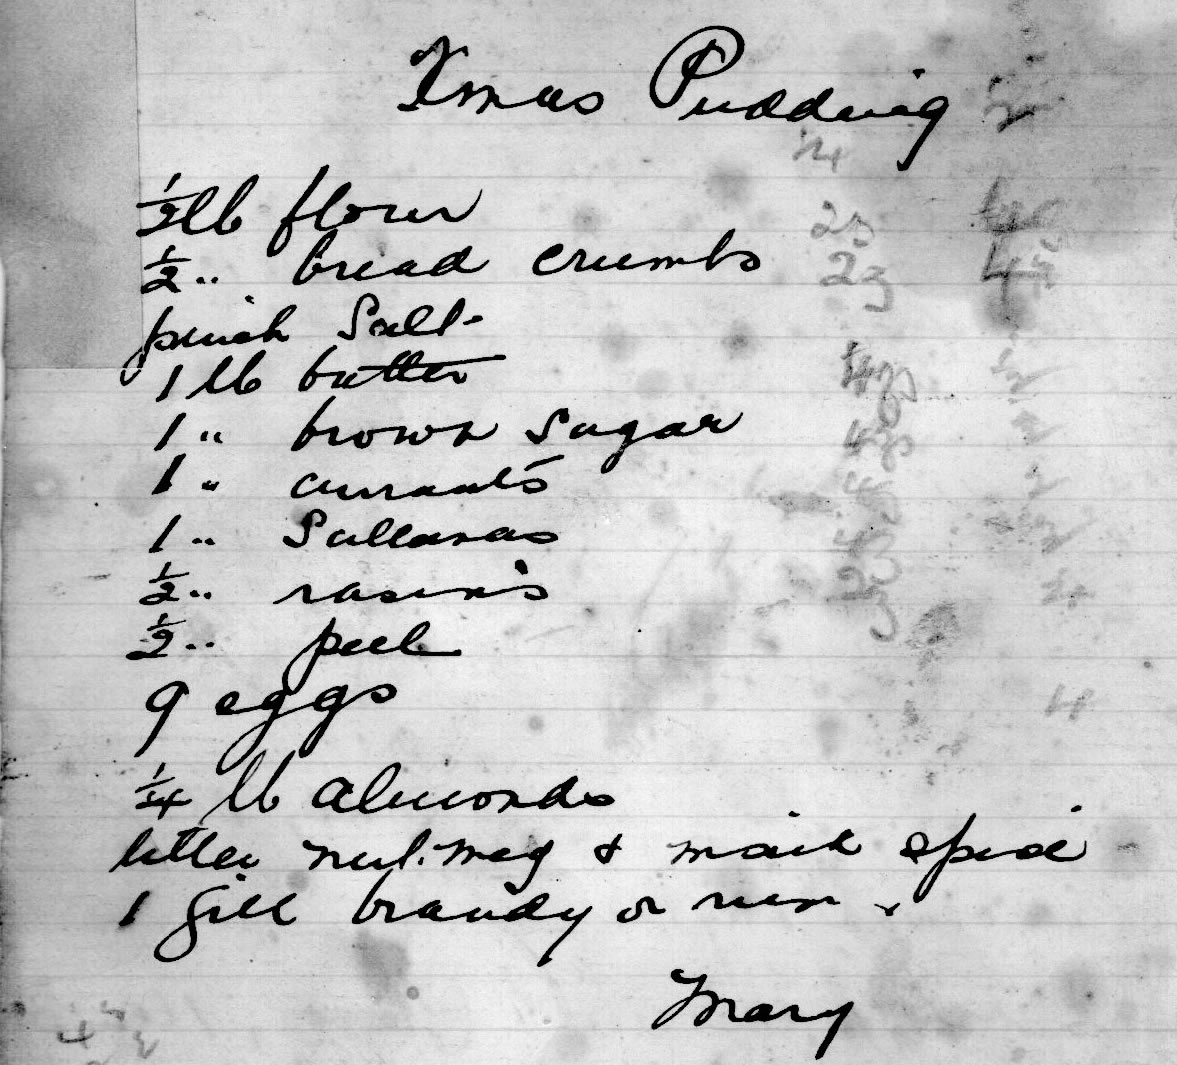 Xmas Pudding
½ lb flour
½ " bread crumbs
pinch Salt
1 lb butter
1 " brown Sugar
1 " currants
1 " Sultanas
½ " rasin's
½ " peel
9 eggs
¼ lb almonds
little nut.meg & spice
1 Gill brandy or rum
Mary